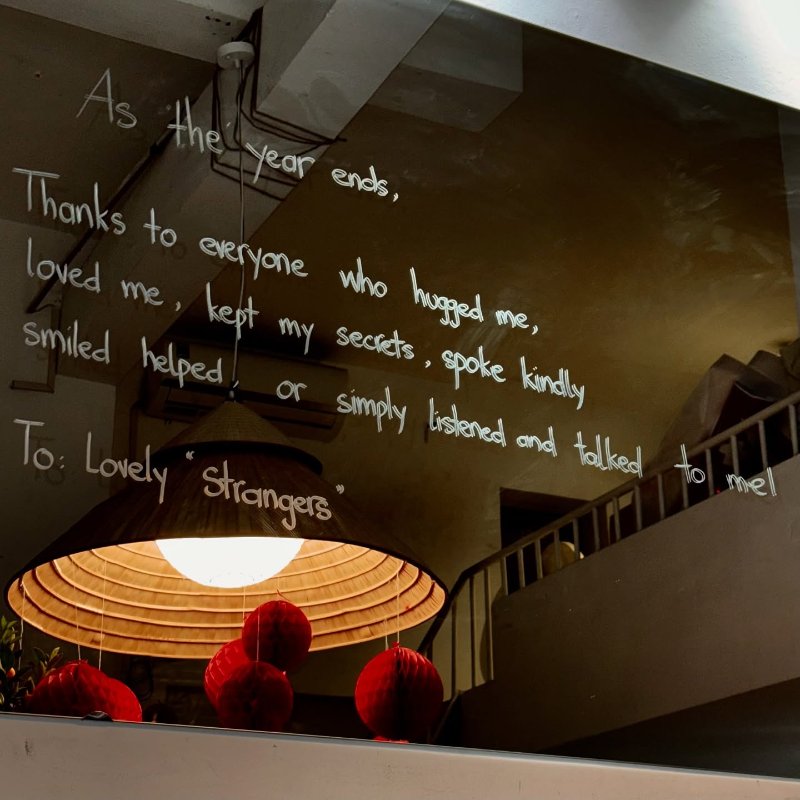 As the year ends,
Thanks to everyone who hugged me,
loved me, kept my secrets, spoke kindly
smiled helped or simply listened and talked to me!
To: Lovely "Strangers"